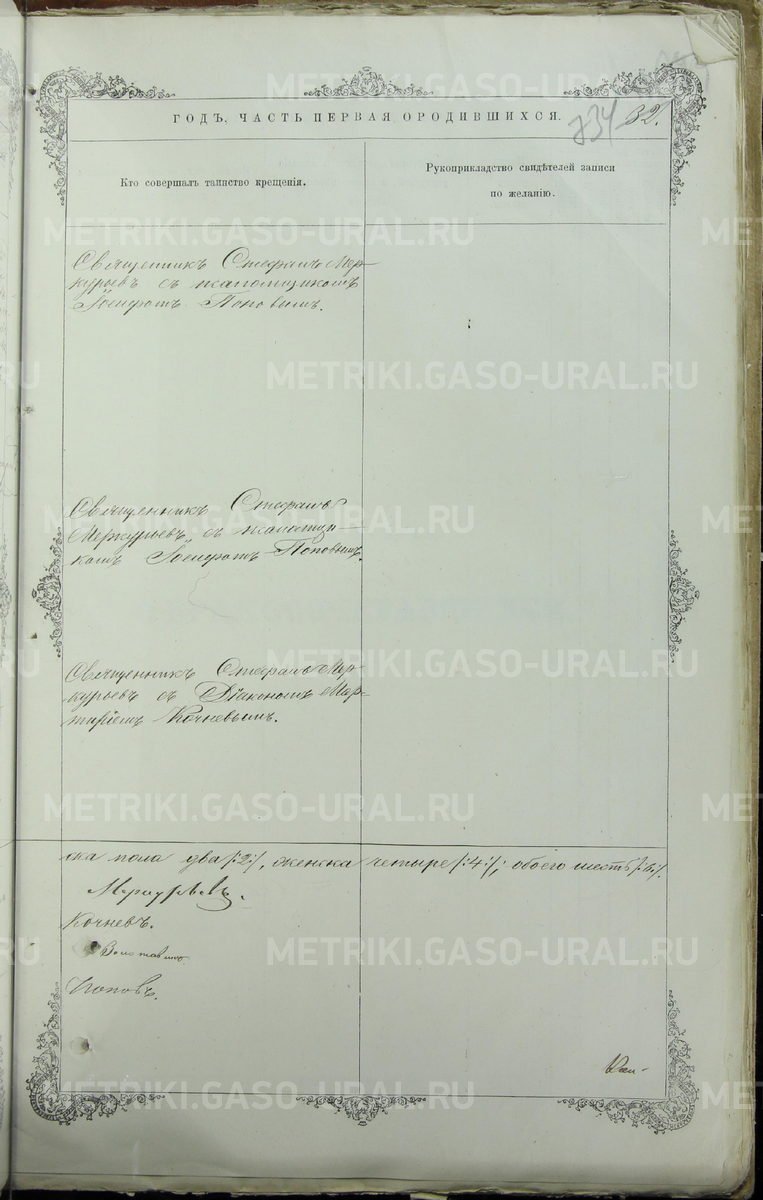 ГОДЪ, ЧАСТЬ ПЕРВАЯ, О РОДИВШИХСЯ.
734 32.
Кто совершалъ таинство крещенія.
Рукоприкладство свидѣтелей записи
по желанію.
Священникъ Стефанъ Мер-
курьевъ съ псаломщикомъ
Іосифомъ Поповымъ.
Священникъ Стефанъ
Меркурьевъ съ псаломщи-
комъ Іосифомъ Поповымъ.
Священникъ Стефанъ Мер-
курьевъ съ Діакономъ Мар-
тиріемъ Кочневымъ.
ска пола два /:2:/, женска четыре /:4:/; обоего шесть /:6:/.
Меркурьевъ.
Кочневъ.
Поповъ.
METRIKI.GASO-URAL.RU